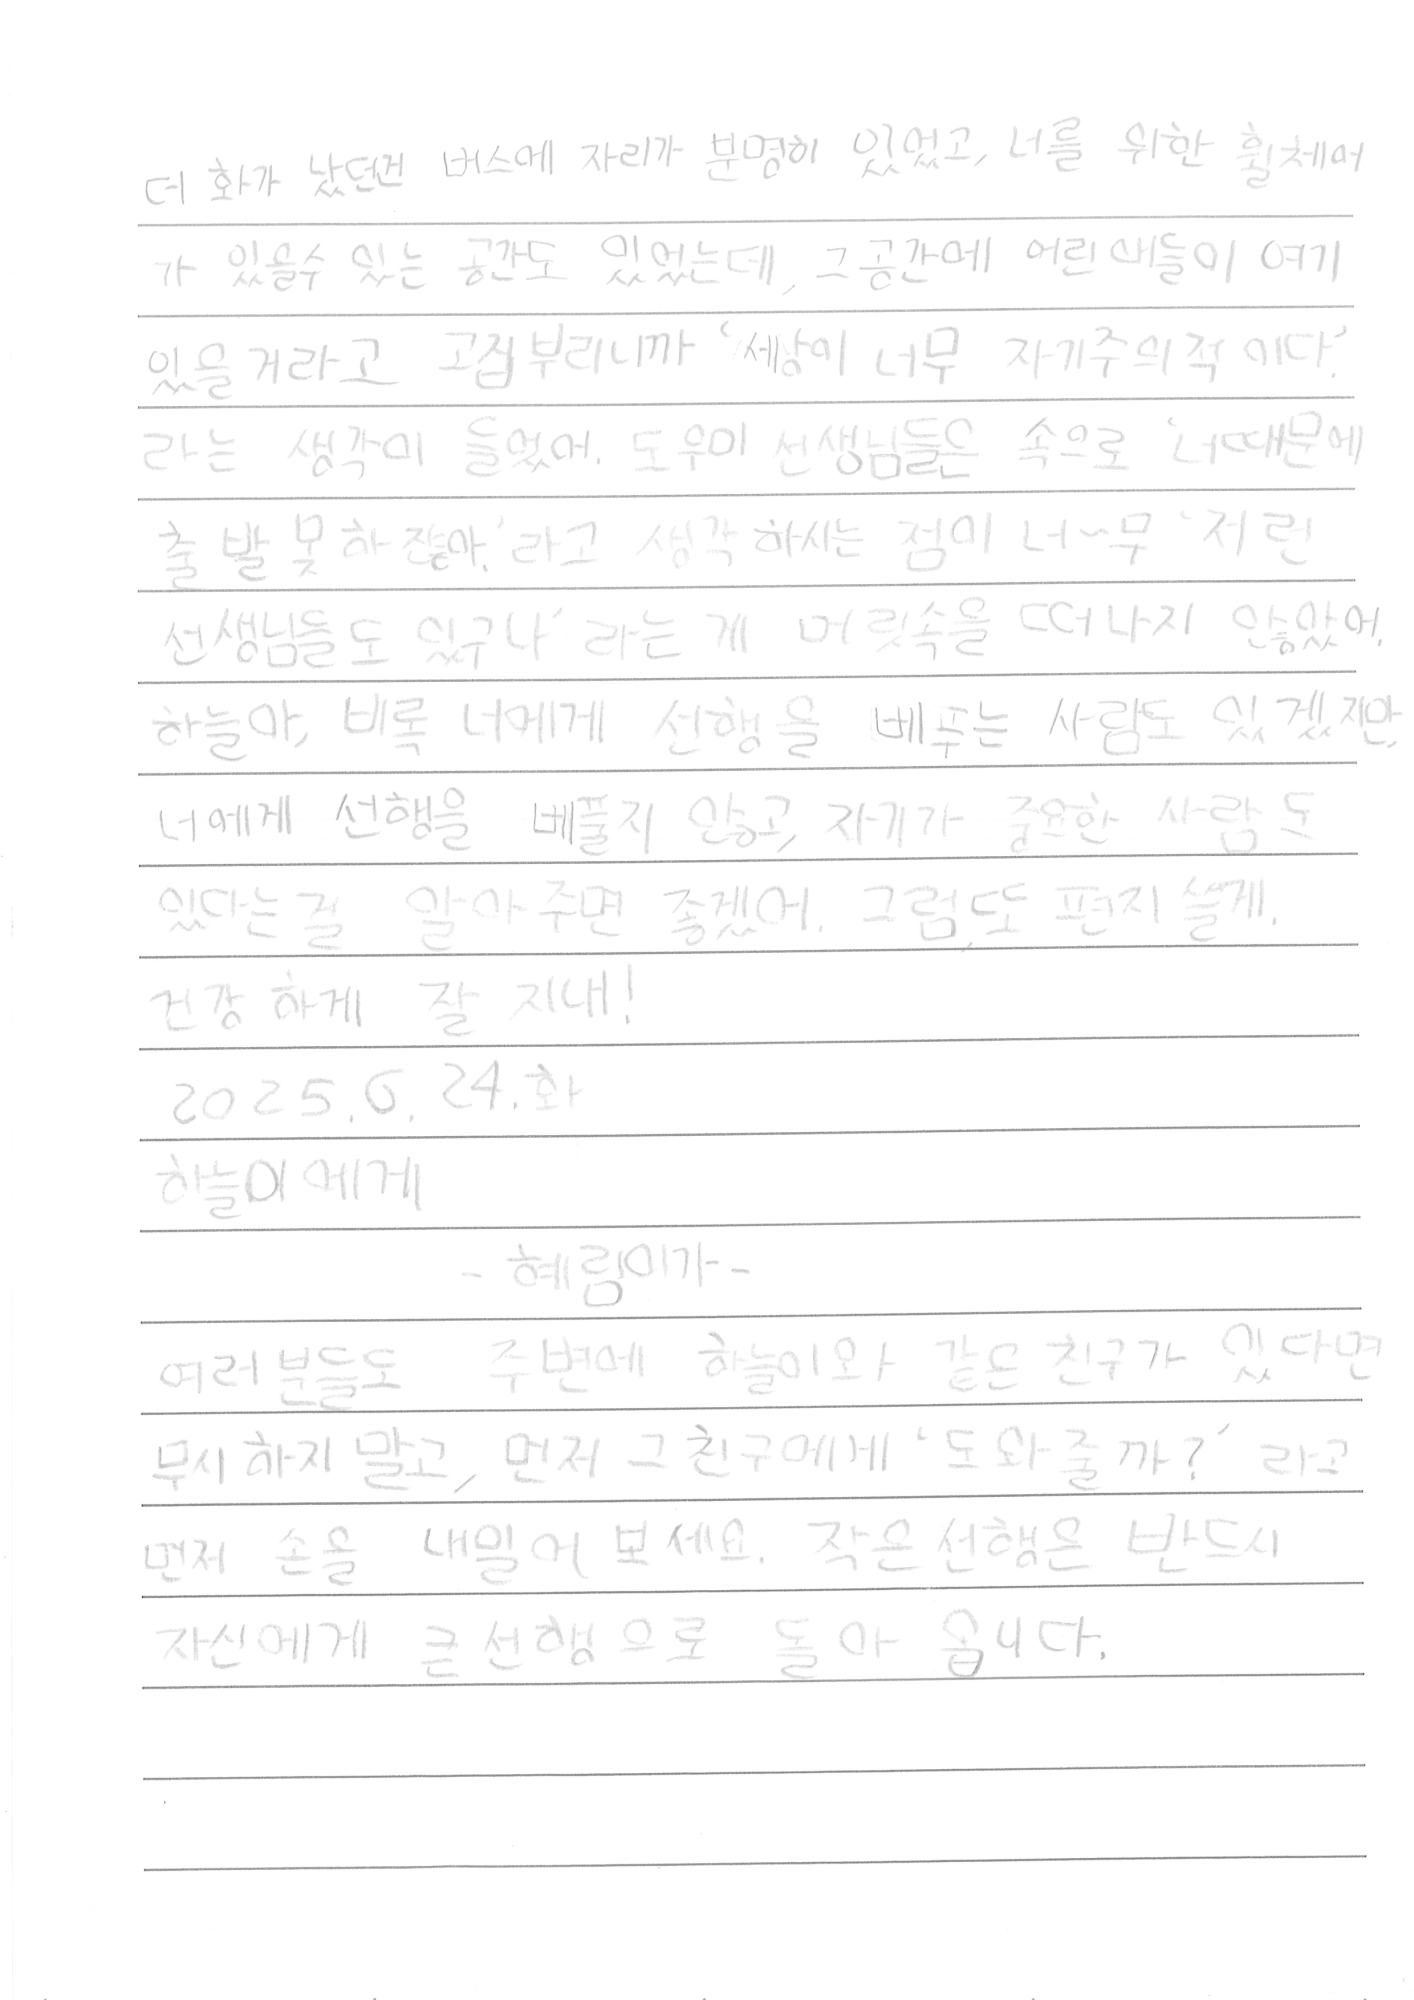 더 화가 났던건 버스에 자리가 분명히 있었고, 너를 위한 휠체어
가 있을수 있는 공간도 있었는데, 그공간에 어린애들이 여기
있을거라고 고집부리니까 '세상이 너무 자기주의적이다.'
라는 생각이 들었어. 도우미 선생님들은 속으로 '너때문에
출발 못하잖아.'라고 생각하시는 점이 너~무 '저런
선생님들도 있구나'라는 게 머릿속을 떠나지 않았어.
하늘아, 비록 너에게 선행을 베푸는 사람도 있겠지만,
너에게 선행을 베풀지 않고, 자기가 중요한 사람도
있다는걸 알아주면 좋겠어. 그럼, 또 편지 쓸게.
건강하게 잘 지내!
2025.6.24.화
하늘이에게
- 혜림이가 -
여러분들도 주변에 하늘이와 같은 친구가 있다면
무시하지 말고, 먼저 그 친구에게 '도와줄까?' 라고
먼저 손을 내밀어 보세요. 작은 선행은 반드시
자신에게 큰선행으로 돌아옵니다.